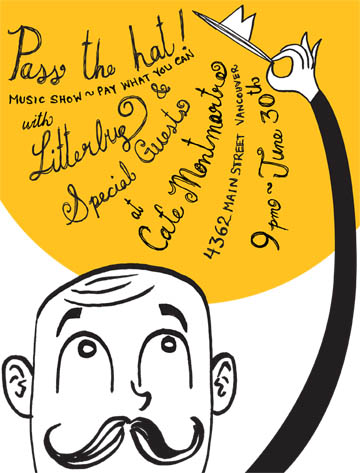 Pass the hat!
MUSIC SHOW ~ PAY WHAT YOU CAN
with
Litterbug &
Special Guests
at
Cafe Montmartre
4362 MAIN STREET VANCOUVER
9 pm ~ June 30th